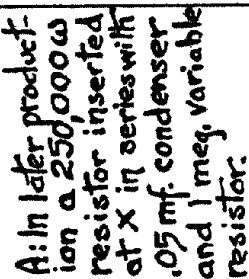 A: In later product-
ion a 250,000 ω
resistor inserted
at X in series with
.05 mf. condenser
and 1 meg. variable
resistor.